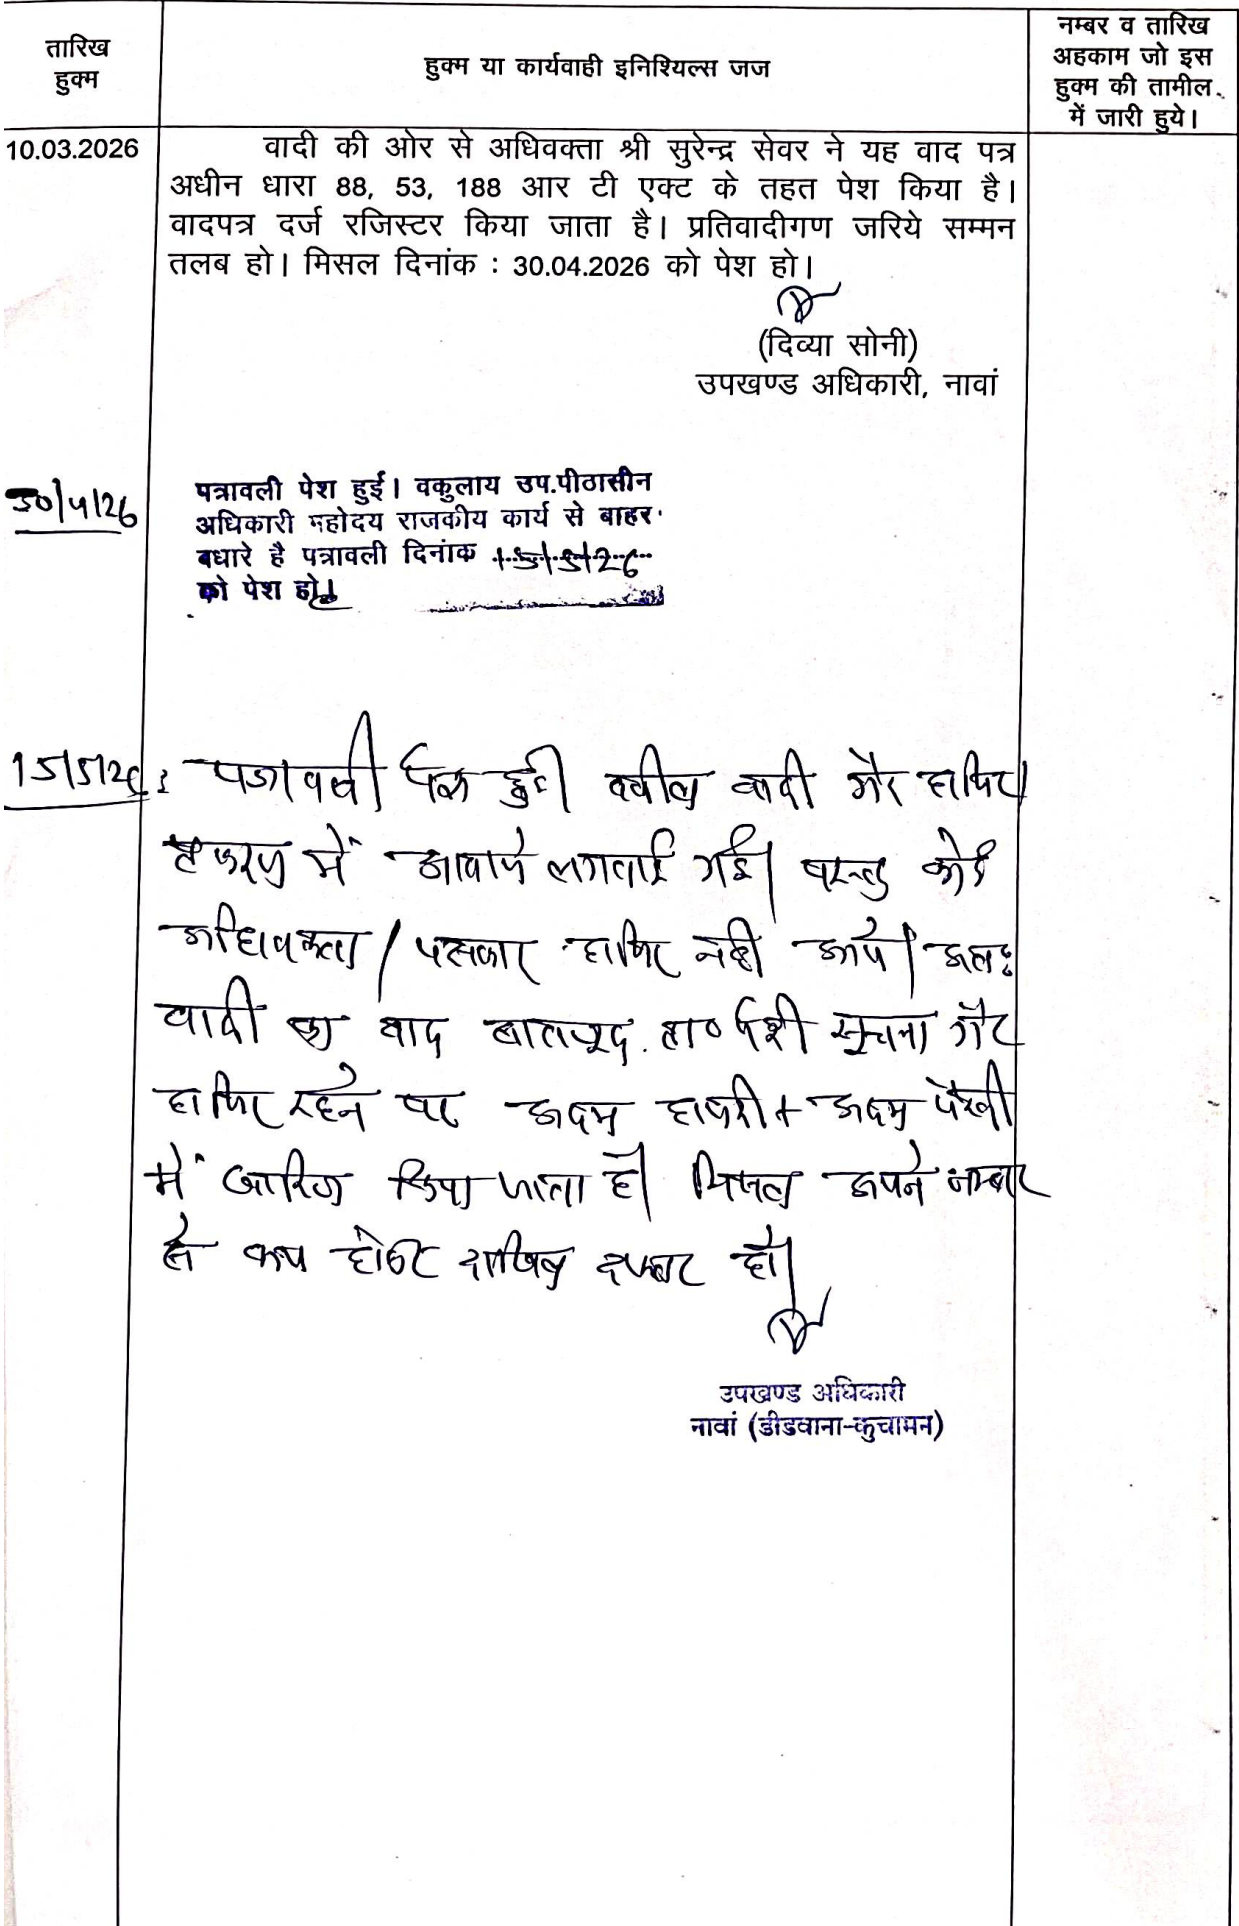 तारिख
हुक्म
हुक्म या कार्यवाही इनिश्यिल्स जज
नम्बर व तारिख
अहकाम जो इस
हुक्म की तामील
में जारी हुये।
10.03.2026
वादी की ओर से अधिवक्ता श्री सुरेन्द्र सेवर ने यह वाद पत्र
अधीन धारा 88, 53, 188 आर टी एक्ट के तहत पेश किया है।
वादपत्र दर्ज रजिस्टर किया जाता है। प्रतिवादीगण जरिये सम्मन
तलब हो। मिसल दिनांक : 30.04.2026 को पेश हो।
(दिव्या सोनी)
उपखण्ड अधिकारी, नावां
30/4/26
पत्रावली पेश हुई। वकुलाय उप.पीठासीन
अधिकारी महोदय राजकीय कार्य से बाहर
बधारे है पत्रावली दिनांक 15/5/26
को पेश हो।
15/5/26 : पत्रावली पेश हुई। वकील वादी गैर हाजिर।
प्रकरण में आवाजे लगवाई गई। परन्तु कोई
अधिवक्ता / पक्षकार हाजिर नही आये। अतः
वादी का वाद बावजूद ता० पेशी सूचना गैर
हाजिर रहने पर अदम हाजरी + अदम पैरवी
में खारिज किया जाता है। मिसल अपने नम्बर
से कम होकर दाखिल दफ्तर हो।
उपखण्ड अधिकारी
नावां (डीडवाना-कुचामन)